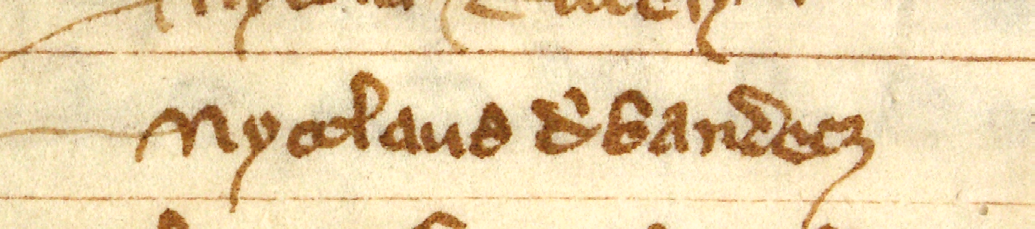 Nycolaus d' Bandecz